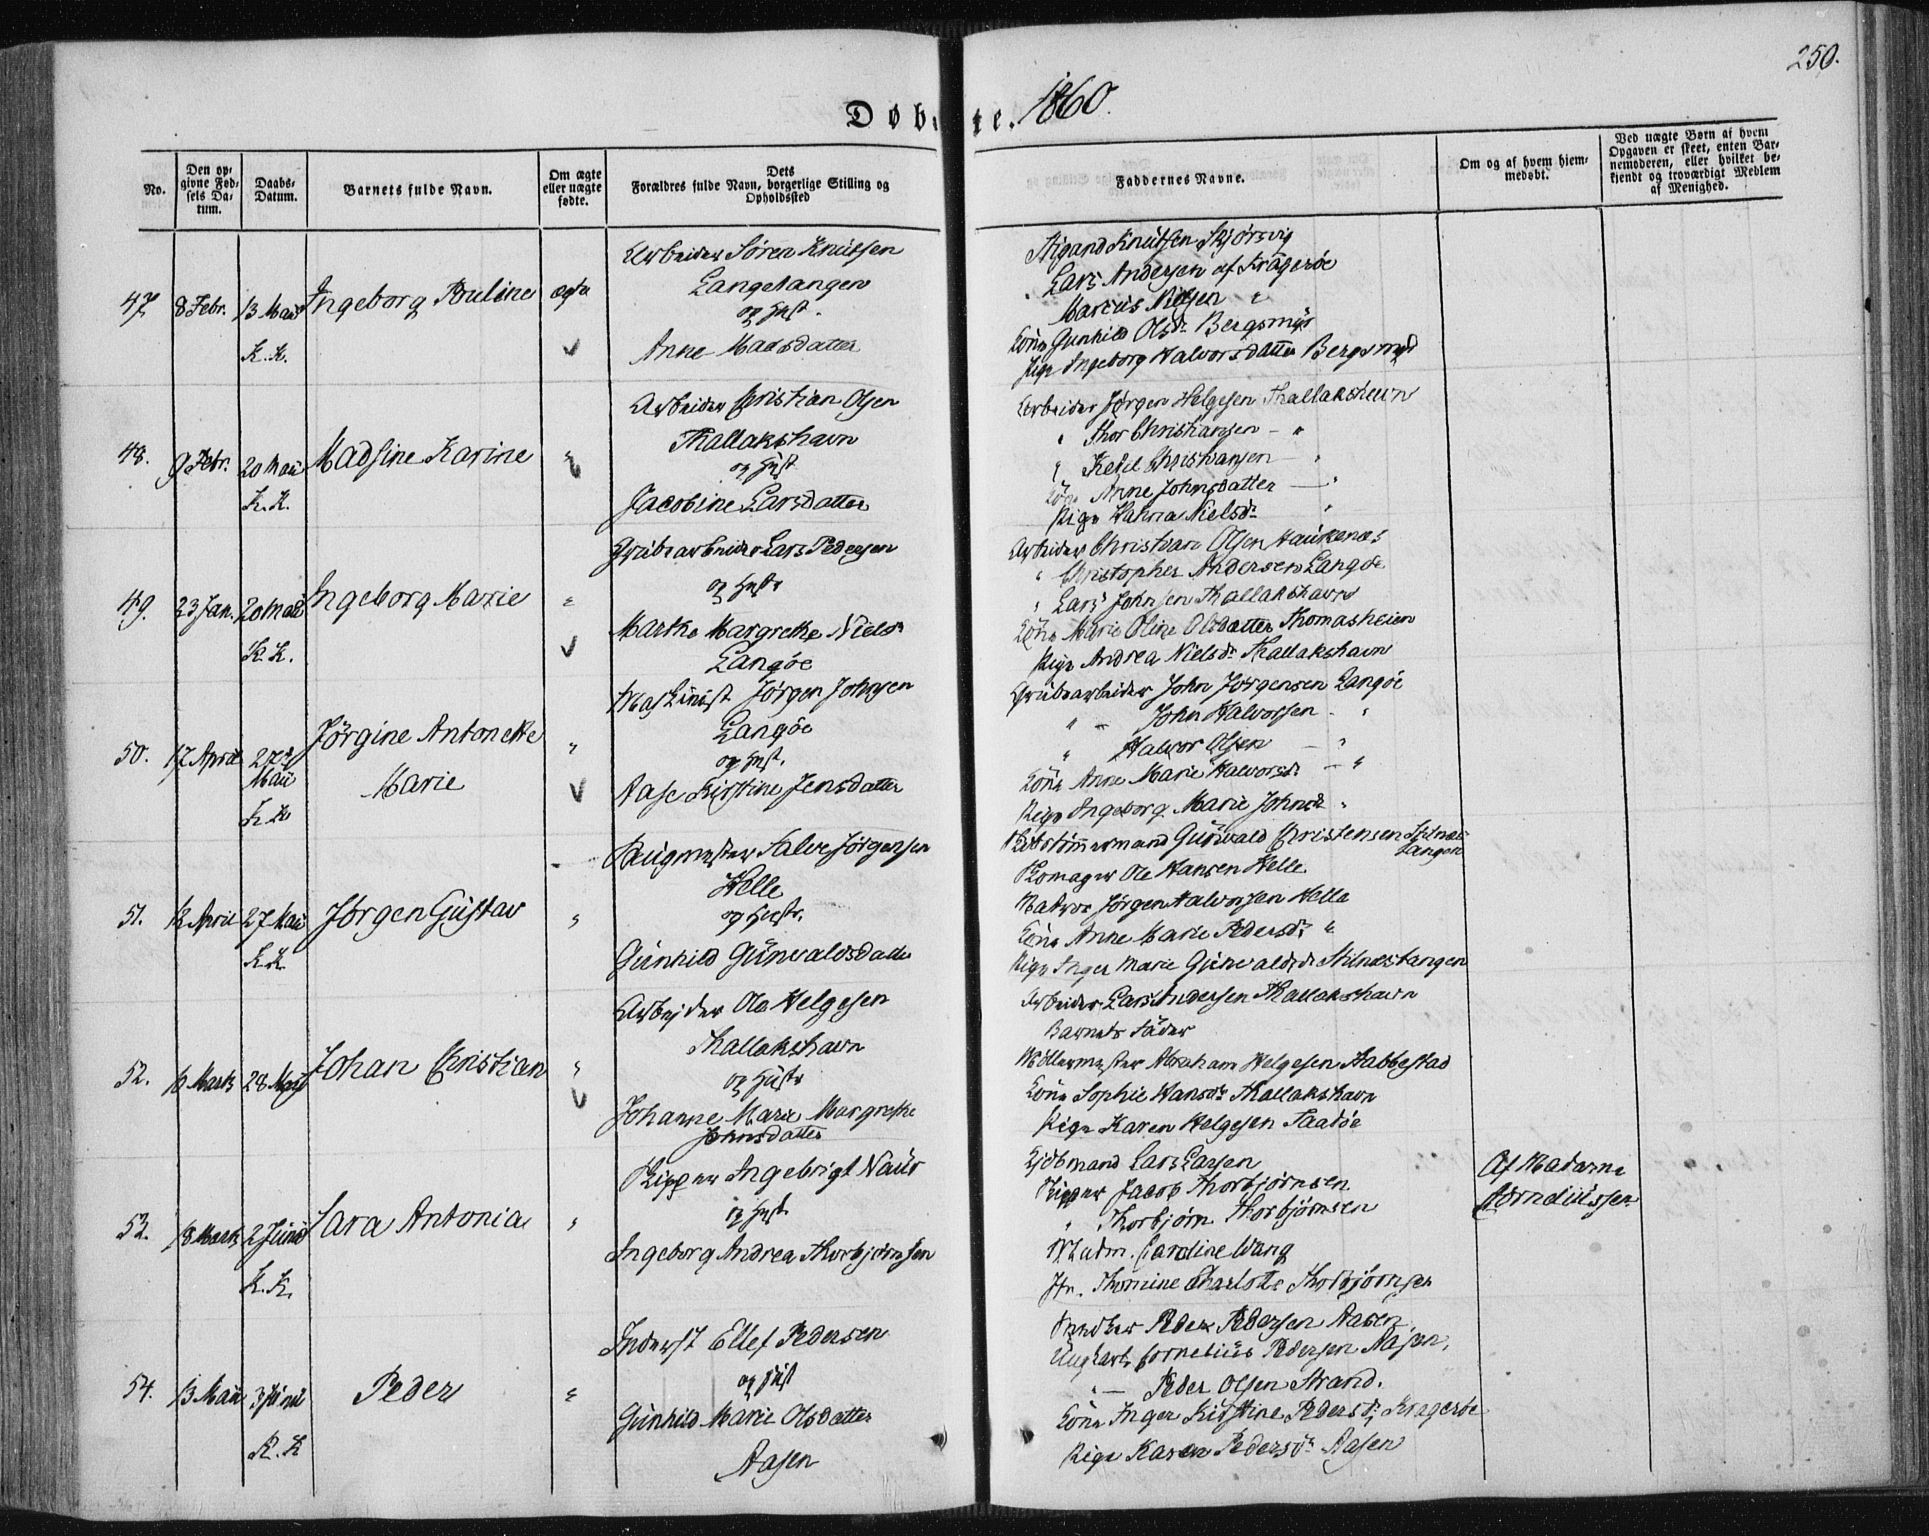 250.
Døbte. 1860.
No.
Den opgivne Fødsels Datum.
Daabs-Datum.
Barnets fulde Navn.
Om ægte eller uægte fødte.
Dets Forældres fulde Navn, borgerlige Stilling og Opholdssted
Faddernes Navne.
Om og af hvem hjemmedøbt.
Ved uægte Børn af hvem Opgaven er skeet, enten Barnemoderen, eller hvilket bekjendt og troværdigt Medlem af Menighed.
47. 8 Febr. 13 Mai K.K.
Ingeborg Pauline
ægte
Arbeider Søren Knutsen
Langetangen
og Hust.
Anne Madsdatter
Sigand Knutsen Skjørsvig
Lars Andersen af Kragerøe
Marcus Nilsen "
Kone Gunhild Olsdr Bergsmyr
Pige Ingeborg Halvorsdatter Bergsmyr
48. 9 Febr. 20 Mai K.K.
Madsine Karine
"
Arbeider Christian Olsen
Thallakshavn
og Hust
Jacobine Larsdatter
Arbeider Jørgen Helgesen Thallakshavn
" Thor Christiansen - "
" Ketil Christiansen - "
Kone Anne Johnsdatter - "
Pige Hanna Nielsdr "
49. 23 Jan. 20 Mai K.K.
Ingeborg Marie
"
Grubearbeider Lars Pedersen
og Hustr
Marthe Margrethe Nielsdr
Langøe
Arbeider Christian Olsen Haukenæs
" Christopher Andersen Langøe
" Lars Johnsen Thallakshavn
Kone Marie Oline Olsdatter Thomasheien
Pige Andrea Nielsdr Thallakshavn
50. 17 April 27de Mai K.K
Jörgine Antonette
Marie
"
Maskinist Jørgen Johnsen
Langöe
og Hust.
Aase Kirstine Jensdatter
Grubearbeider John Jørgensen Langöe
" - John Halvorsen - "
" Halvor Olsen - "
Kone Anne Marie Halvorsdr - "
Pige Ingeborg Marie Johnsdr "
51. 12 April 27 Mai K.K.
Jørgen Gustav
"
Saugmester Salve Jörgensen
Helle
og Hustr.
Gunhild Gunvaldsdatter
Skibstömmermand Gunvald Christensen Stilnæstangen
Skomager Ole Hansen Helle
Matros Jørgen Halvorsen Helle
Kone Anne Marie Pedersdr "
Pige Inger Marie Gunvaldsdr Stilnæstangen
52. 10 Marts 28 Mai
Johan Christian
"
Arbejder Ole Helgesen
Thallakshavn
og Hustr
Johanne Marie Margrethe
Johnsdatter
Arbeider Lars Andersen Thallakshavn
Barnets Fader
Möllermester Abraham Helgesen Habbestad
Kone Sophie Hansdr Thallakshavn
Pige Karen Helgesen Saatöe
53. 18 Marts 2 Juni K.K.
Sara Antonia
"
Skipper Ingebrigt Naur
og Hust
Ingeborg Andrea Thorbjørnsen
Kjöbmand Lars Larsen
Skipper Jacob Thorbjörnsen
" Thorbjørn Thorbjörnsen
Madm. Caroline Wang
Jfr. Thomine Charlotte Thorbjörnsen
Af Madame
Corneliussen
54. 13 Mai 3 Juni K.K
Peder
"
Inderst Ellef Pedersen
og Hust
Gunhild Marie Olsdatter
Aasen
Peder Pedersen Aasen
Ungkarl Cornelius Pedersen Aasen,
" - Peder Olsen Strand.
Kone Inger Kirstine Pedersdr, Kragerøe
Pige Karen Pedersdr Aasen